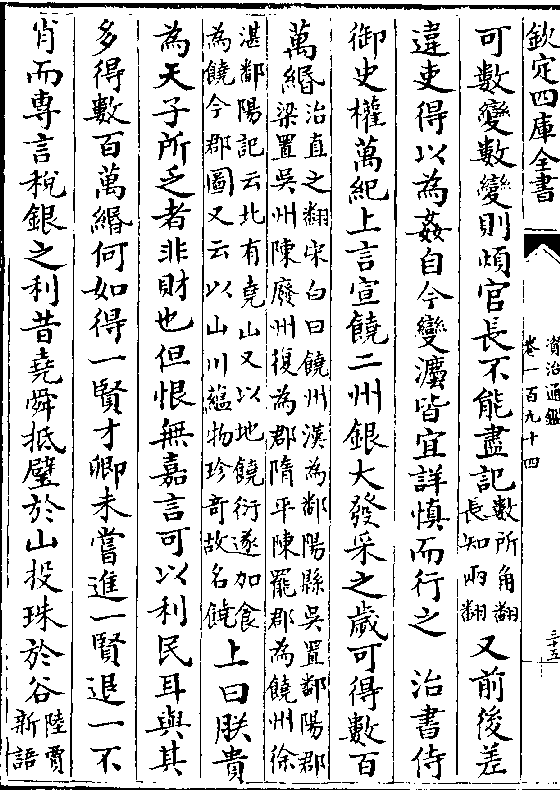 欽定四庫全書
資治通鑑
卷一百九十四
三十五
可數變數變則煩官長不能盡記數所角翻
長知兩翻又前後差
違吏得以為姦自今變灋皆宜詳慎而行之　治書侍
御史權萬紀上言宣饒二州銀大發采之歲可得數百
萬緡治直之翻宋白曰饒州漢為鄱陽縣吳置鄱陽郡
梁置吳州陳廢州復為郡隋平陳罷郡為饒州徐
湛鄱陽記云北有堯山又以地饒衍遂加食
為饒今郡圖又云以山川蘊物珍奇故名饒上曰朕貴
為天子所乏者非財也但恨無嘉言可以利民耳與其
多得數百萬緡何如得一賢才卿未嘗進一賢退一不
肖而專言稅銀之利昔堯舜抵璧於山投珠於谷陸賈
新語